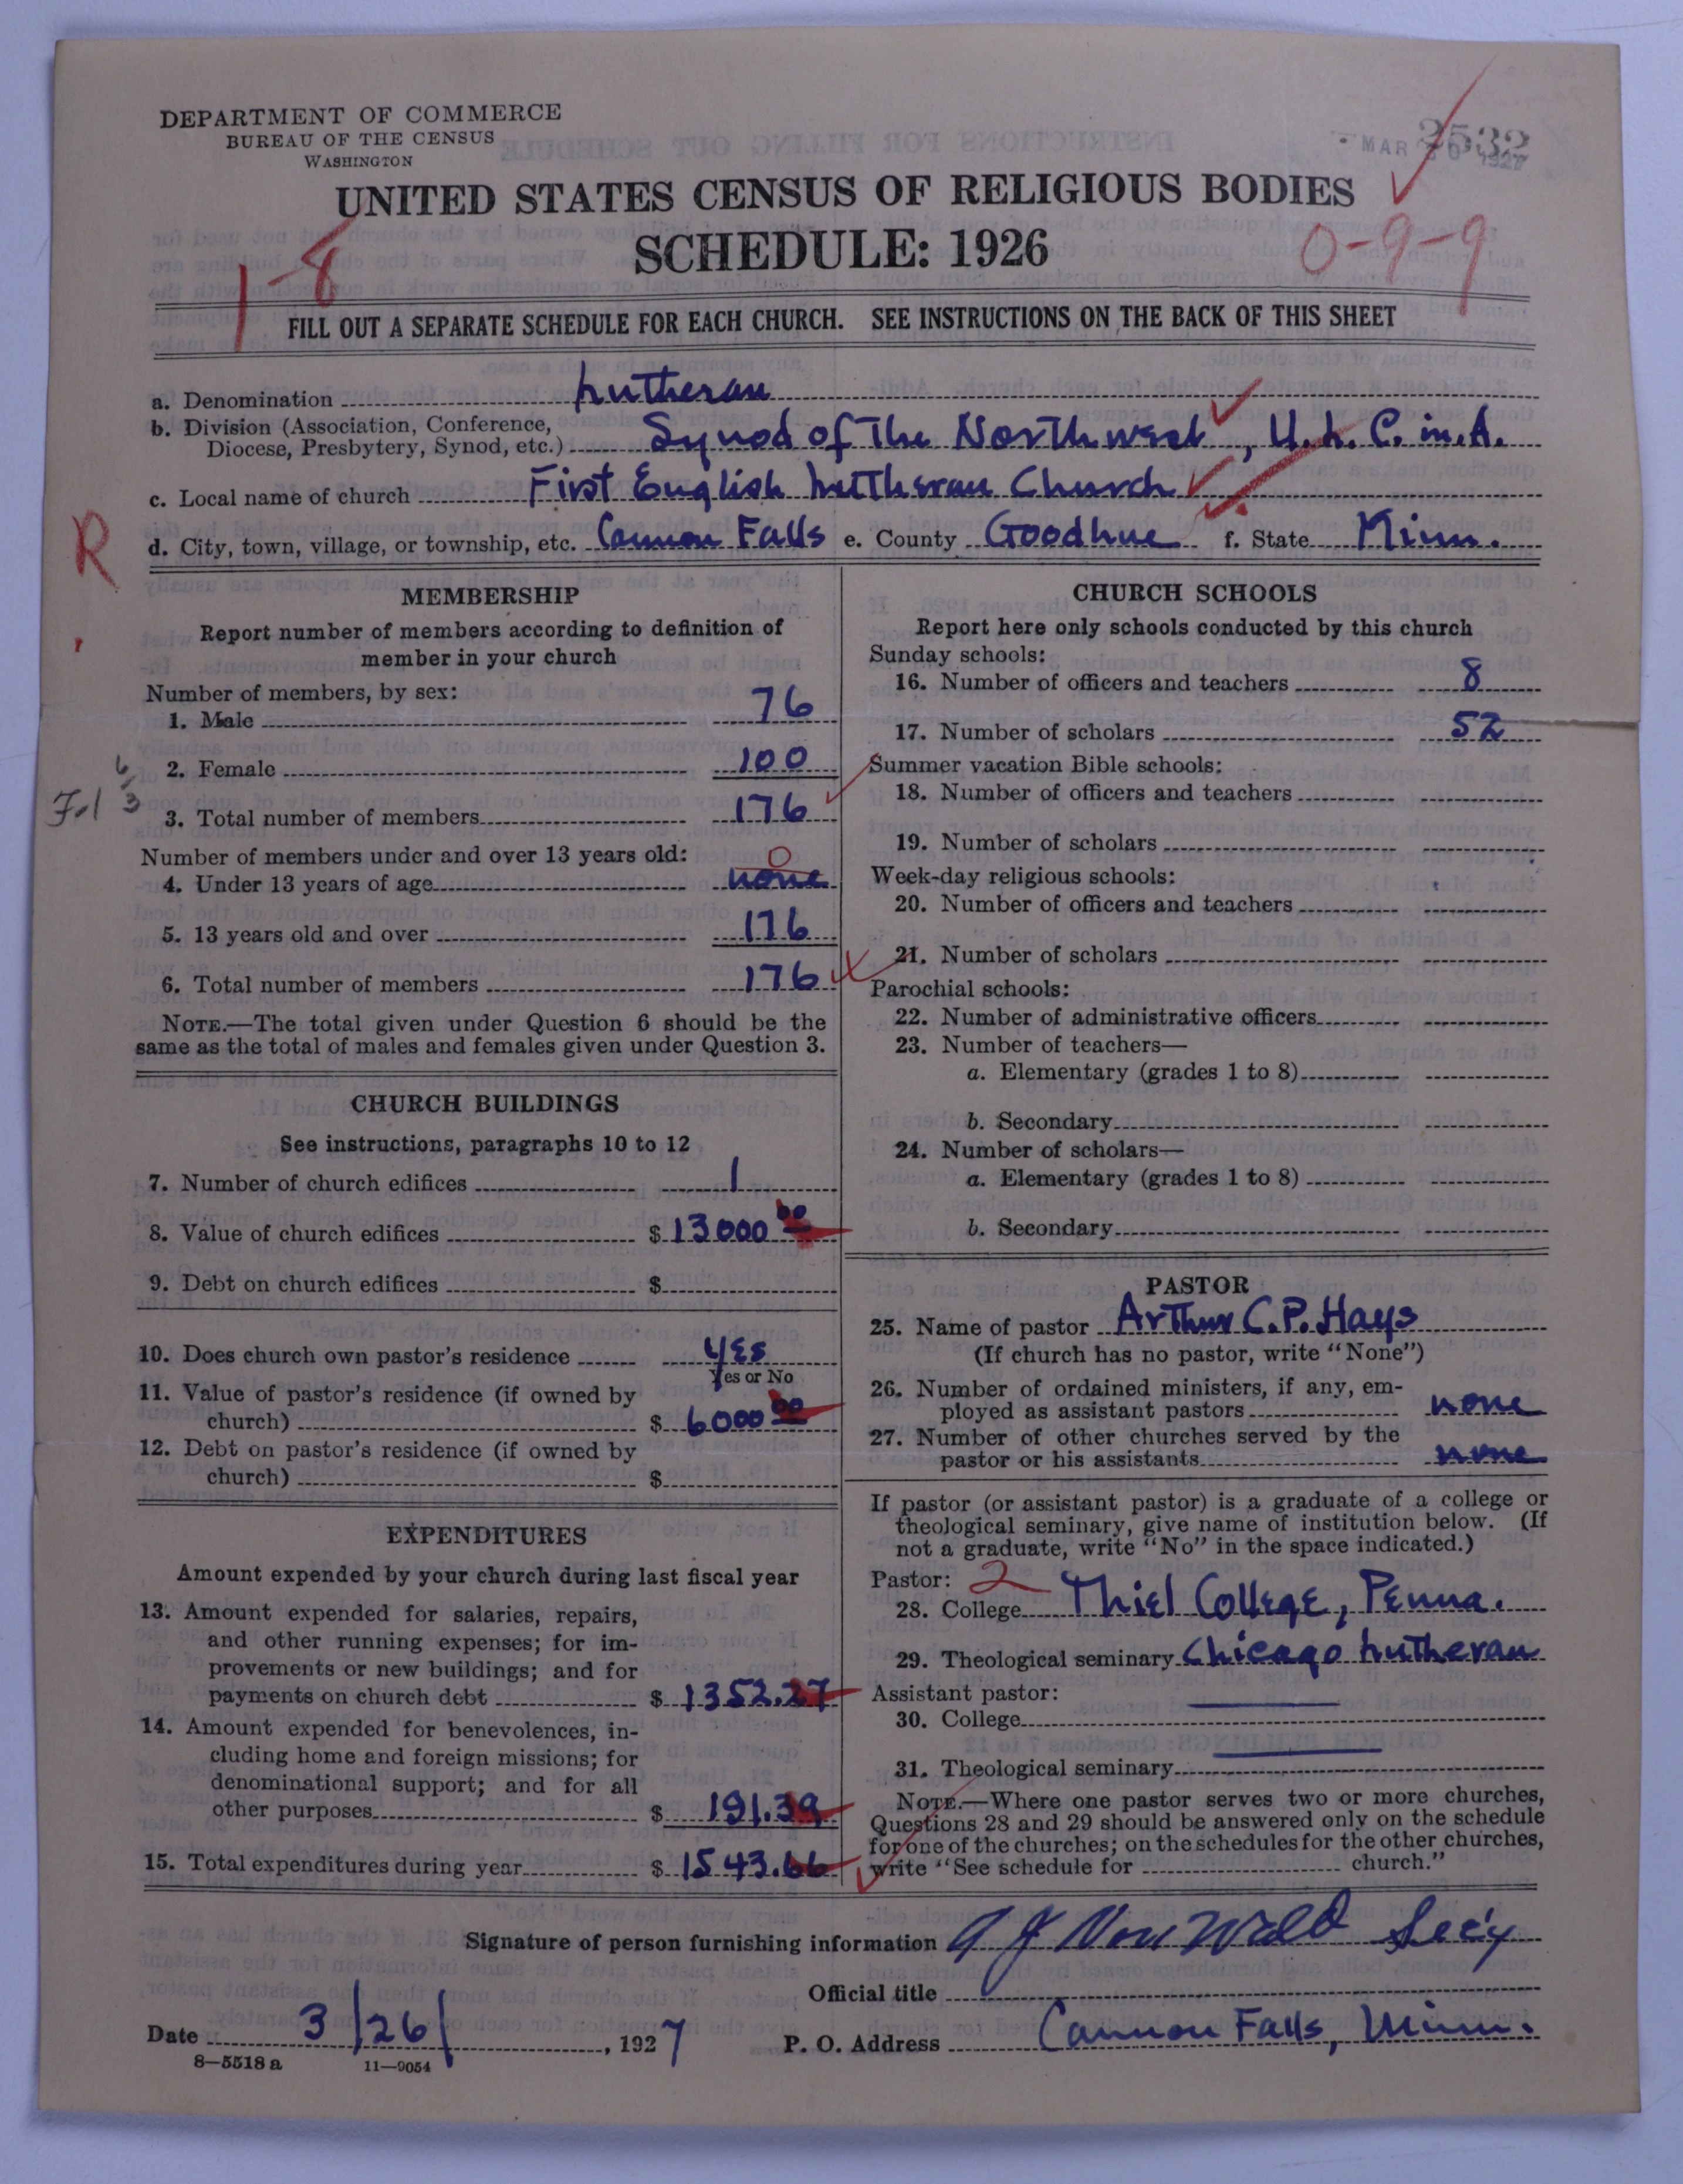 DEPARTMENT OF COMMERCE
BUREAU OF THE CENSUS
WASHINGTON
2532
MAR 30 1927
UNITED STATES CENSUS OF RELIGIOUS BODIES
SCHEDULE: 1926
1-8
0-9-9
FILL OUT A SEPARATE SCHEDULE FOR EACH CHURCH. SEE INSTRUCTIONS ON THE BACK OF THIS SHEET
a. Denomination Lutheran
b. Division (Association, Conference,
Diocese, Presbytery, Synod, etc.) Synod of The Northwest, U.L.C. in A.
c. Local name of church First English Lutheran Church
d. City, town, village, or township, etc. Cannon Falls e. County Goodhue f. State Minn.
R
MEMBERSHIP
Report number of members according to definition of
member in your church
Number of members, by sex:
1. Male 76
2. Female 100
3. Total number of members 176
Number of members under and over 13 years old:
0
4. Under 13 years of age none
5. 13 years old and over 176
6. Total number of members 176
NOTE.—The total given under Question 6 should be the
same as the total of males and females given under Question 3.
CHURCH BUILDINGS
See instructions, paragraphs 10 to 12
7. Number of church edifices 1
8. Value of church edifices $ 13000 00
9. Debt on church edifices $
10. Does church own pastor's residence yes
Yes or No
11. Value of pastor's residence (if owned by
church) $ 6000 00
12. Debt on pastor's residence (if owned by
church) $
EXPENDITURES
Amount expended by your church during last fiscal year
13. Amount expended for salaries, repairs,
and other running expenses; for im-
provements or new buildings; and for
payments on church debt $ 1352.27
14. Amount expended for benevolences, in-
cluding home and foreign missions; for
denominational support; and for all
other purposes $ 191.39
15. Total expenditures during year $ 1543.66
CHURCH SCHOOLS
Report here only schools conducted by this church
Sunday schools:
16. Number of officers and teachers 8
17. Number of scholars 52
Summer vacation Bible schools:
18. Number of officers and teachers
19. Number of scholars
Week-day religious schools:
20. Number of officers and teachers
21. Number of scholars
Parochial schools:
22. Number of administrative officers
23. Number of teachers—
a. Elementary (grades 1 to 8)
b. Secondary
24. Number of scholars—
a. Elementary (grades 1 to 8)
b. Secondary
PASTOR
25. Name of pastor Arthur C.P. Hays
(If church has no pastor, write "None")
26. Number of ordained ministers, if any, em-
ployed as assistant pastors none
27. Number of other churches served by the
pastor or his assistants none
If pastor (or assistant pastor) is a graduate of a college or
theological seminary, give name of institution below. (If
not a graduate, write "No" in the space indicated.)
Pastor: 2
28. College Thiel College, Penna.
29. Theological seminary Chicago Lutheran
Assistant pastor:
30. College
31. Theological seminary
NOTE.—Where one pastor serves two or more churches,
Questions 28 and 29 should be answered only on the schedule
for one of the churches; on the schedules for the other churches,
write "See schedule for church."
Signature of person furnishing information A J Von Wald Sec'y
Official title
Date 3/26/, 1927 P. O. Address Cannon Falls, Minn.
8—5518 a 11—9054